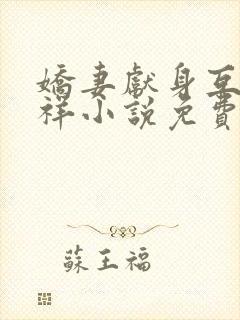 嬌妻獻身互
祥小說免費
蘇王福